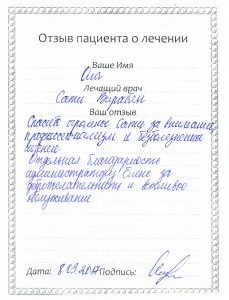 Отзыв пациента о лечении
Ваше Имя
Лечащий врач
Сати
Ваш отзыв
Спасибо огромное Сати за внимание,
профессионализм и безболезненное
Отдельная благодарность
администратору Елене за
доброжелательность и вежливое
обслуживание
Дата: 8.09.2017 Подпись: